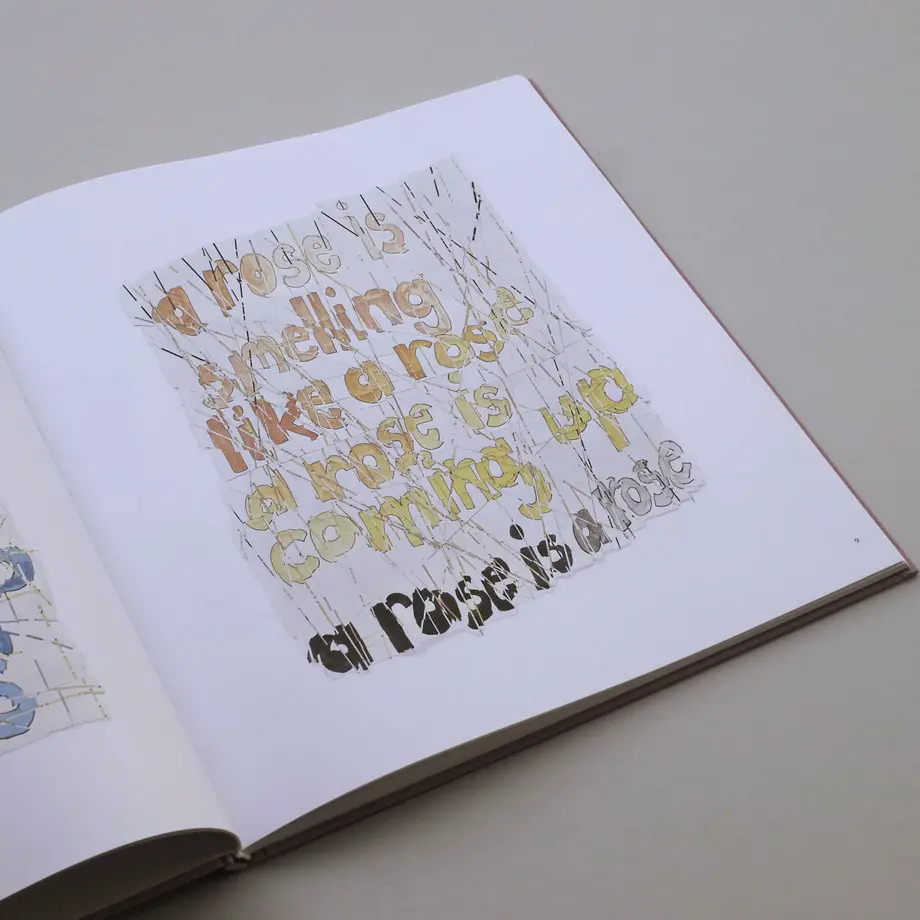 a rose is
smelling
like a rose
a rose is
coming up
a rose is a rose
9